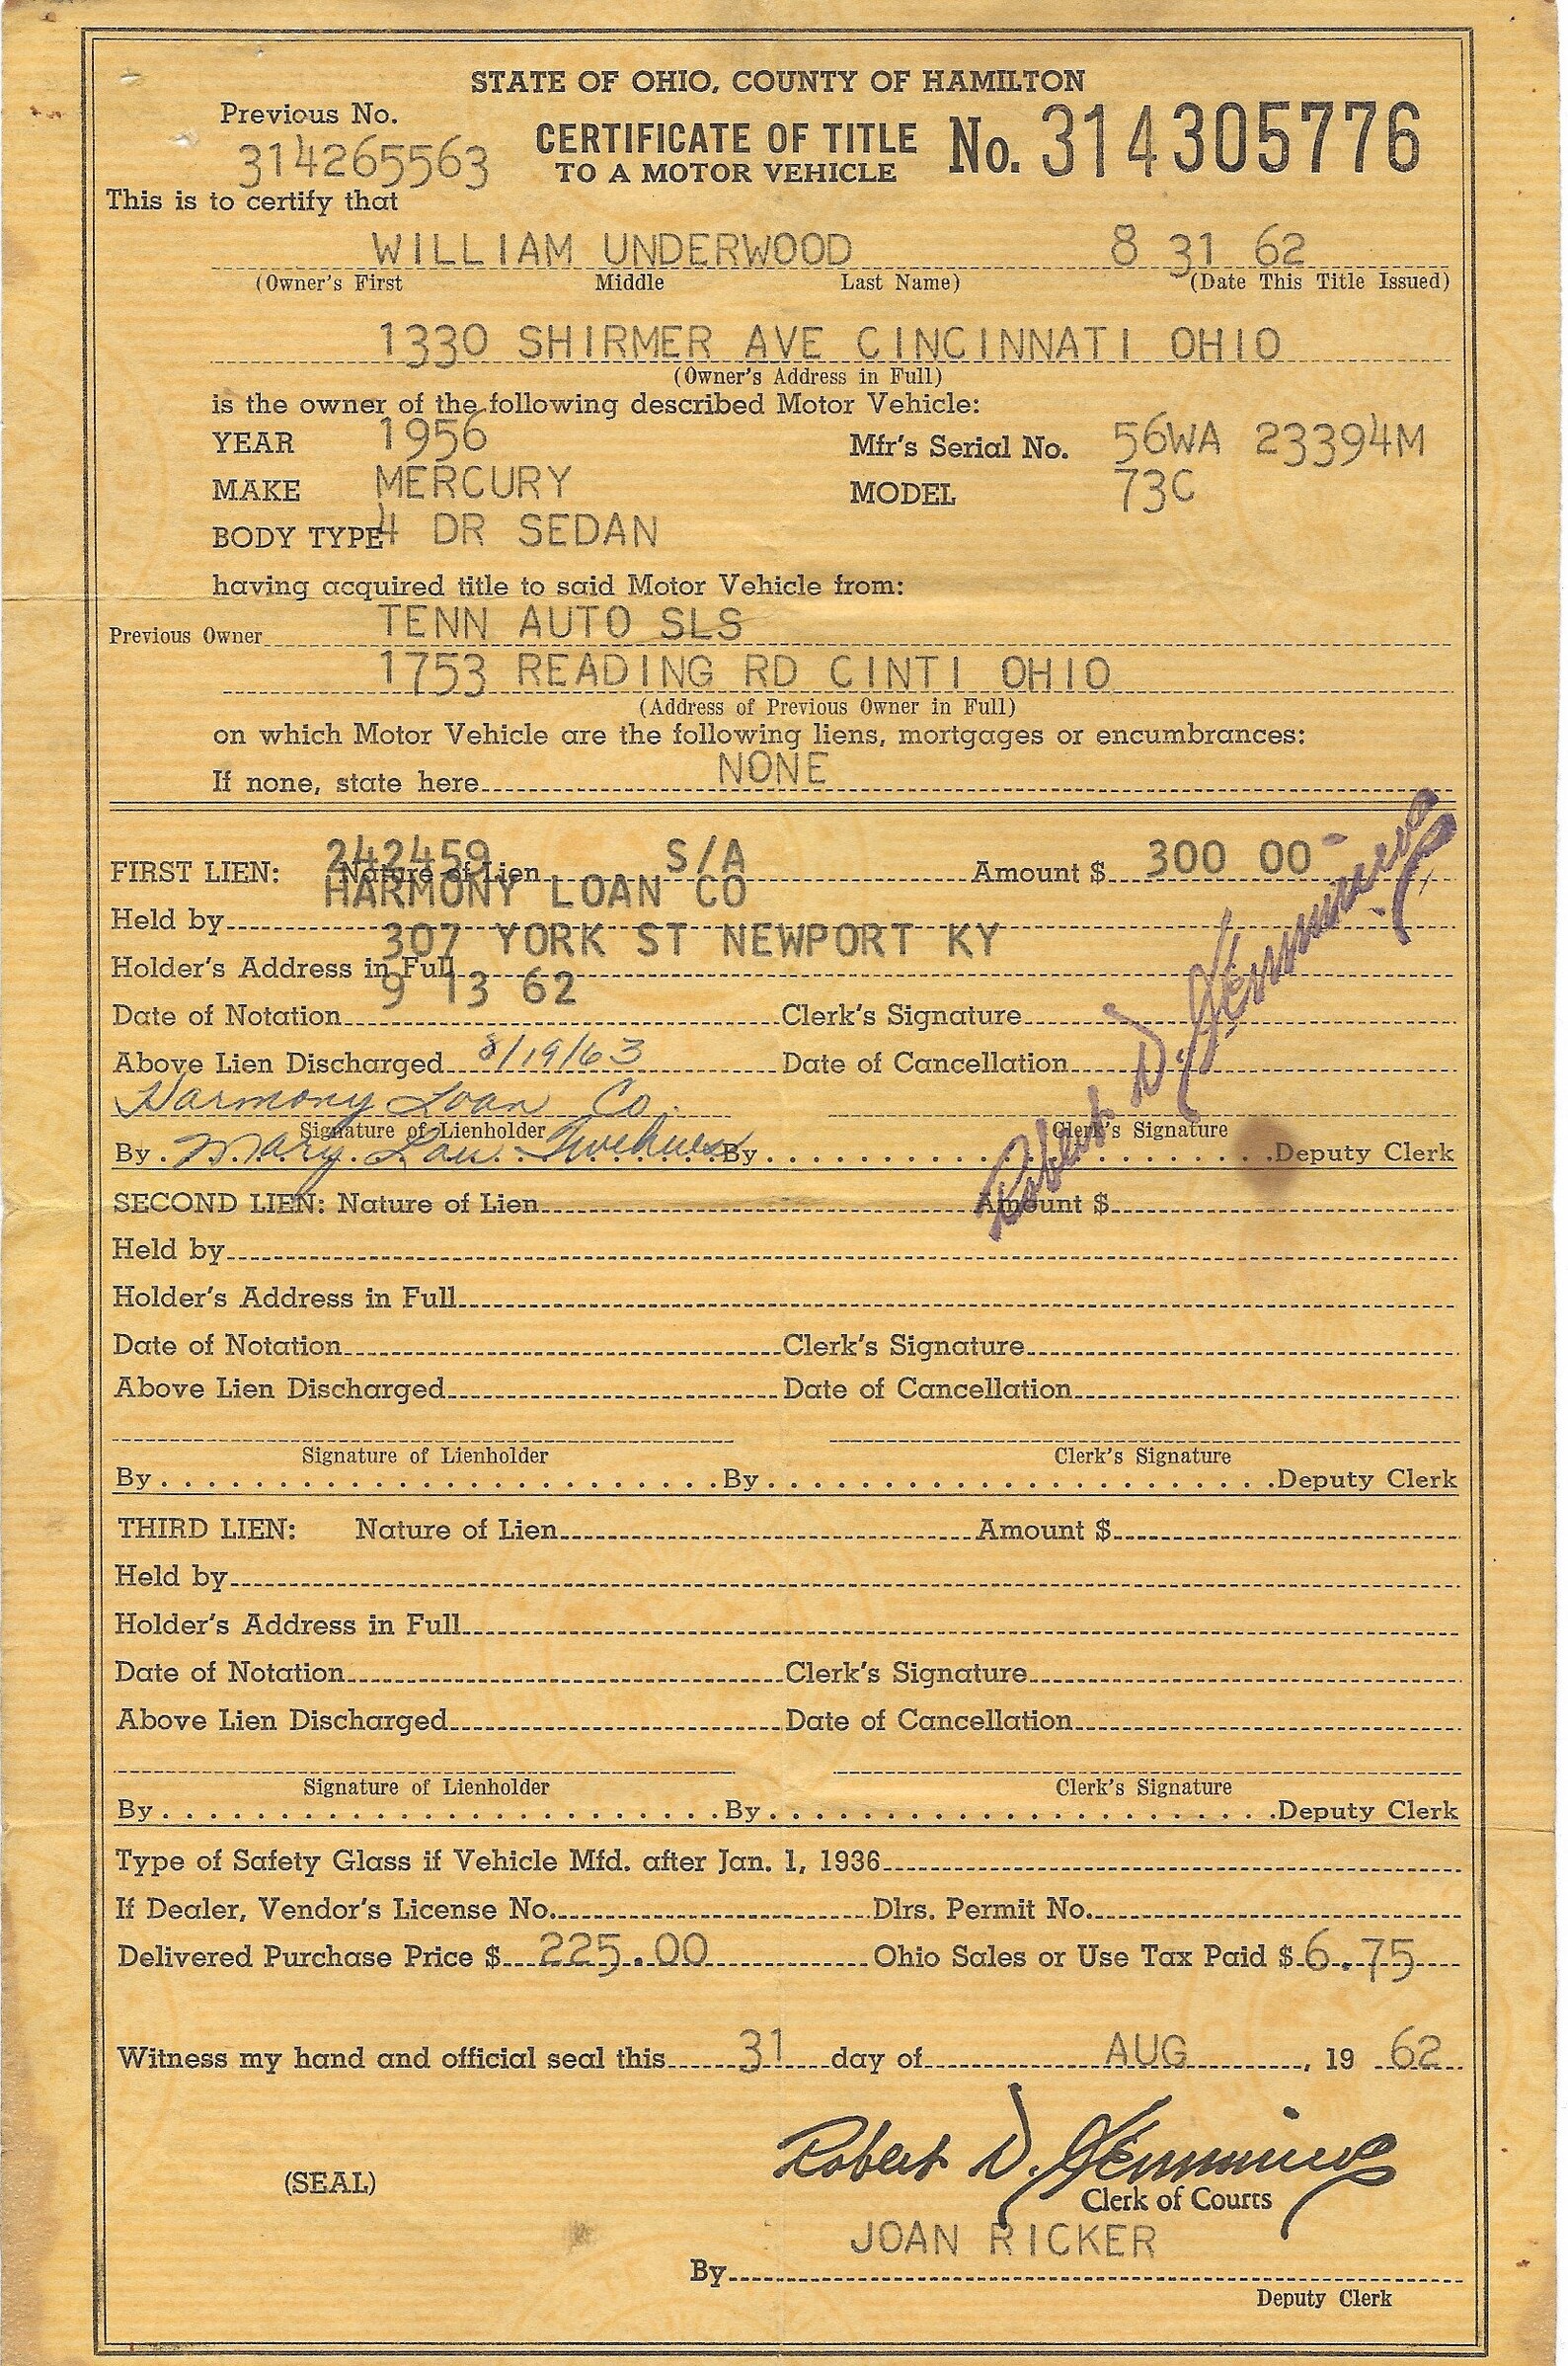 STATE OF OHIO, COUNTY OF HAMILTON
Previous No.
314265563
CERTIFICATE OF TITLE
TO A MOTOR VEHICLE
No. 314305776
This is to certify that
WILLIAM UNDERWOOD 8 31 62
(Owner's First Middle Last Name) (Date This Title Issued)
1330 SHIRMER AVE CINCINNATI OHIO
(Owner's Address in Full)
is the owner of the following described Motor Vehicle:
YEAR 1956 Mfr's Serial No. 56WA 23394M
MAKE MERCURY MODEL 73C
BODY TYPE 4 DR SEDAN
having acquired title to said Motor Vehicle from:
Previous Owner TENN AUTO SLS
1753 READING RD CINTI OHIO
(Address of Previous Owner in Full)
on which Motor Vehicle are the following liens, mortgages or encumbrances:
If none, state here NONE
242459 S/A 300 00
FIRST LIEN: Nature of Lien Amount $
HARMONY LOAN CO
Held by
307 YORK ST NEWPORT KY
Holder's Address in Full
9 13 62
Date of Notation Clerk's Signature
Above Lien Discharged 8/19/63 Date of Cancellation
Harmony Loan Co.
Signature of Lienholder Clerk's Signature
By Mary Lou By Deputy Clerk
Robert D. Jennings
SECOND LIEN: Nature of Lien Amount $
Held by
Holder's Address in Full
Date of Notation Clerk's Signature
Above Lien Discharged Date of Cancellation
Signature of Lienholder Clerk's Signature
By By Deputy Clerk
THIRD LIEN: Nature of Lien Amount $
Held by
Holder's Address in Full
Date of Notation Clerk's Signature
Above Lien Discharged Date of Cancellation
Signature of Lienholder Clerk's Signature
By By Deputy Clerk
Type of Safety Glass if Vehicle Mfd. after Jan. 1, 1936
If Dealer, Vendor's License No. Dlrs. Permit No.
Delivered Purchase Price $ 225.00 Ohio Sales or Use Tax Paid $ 6.75
Witness my hand and official seal this 31 day of AUG, 19 62
Robert D. Jennings
(SEAL) Clerk of Courts
JOAN RICKER
By
Deputy Clerk